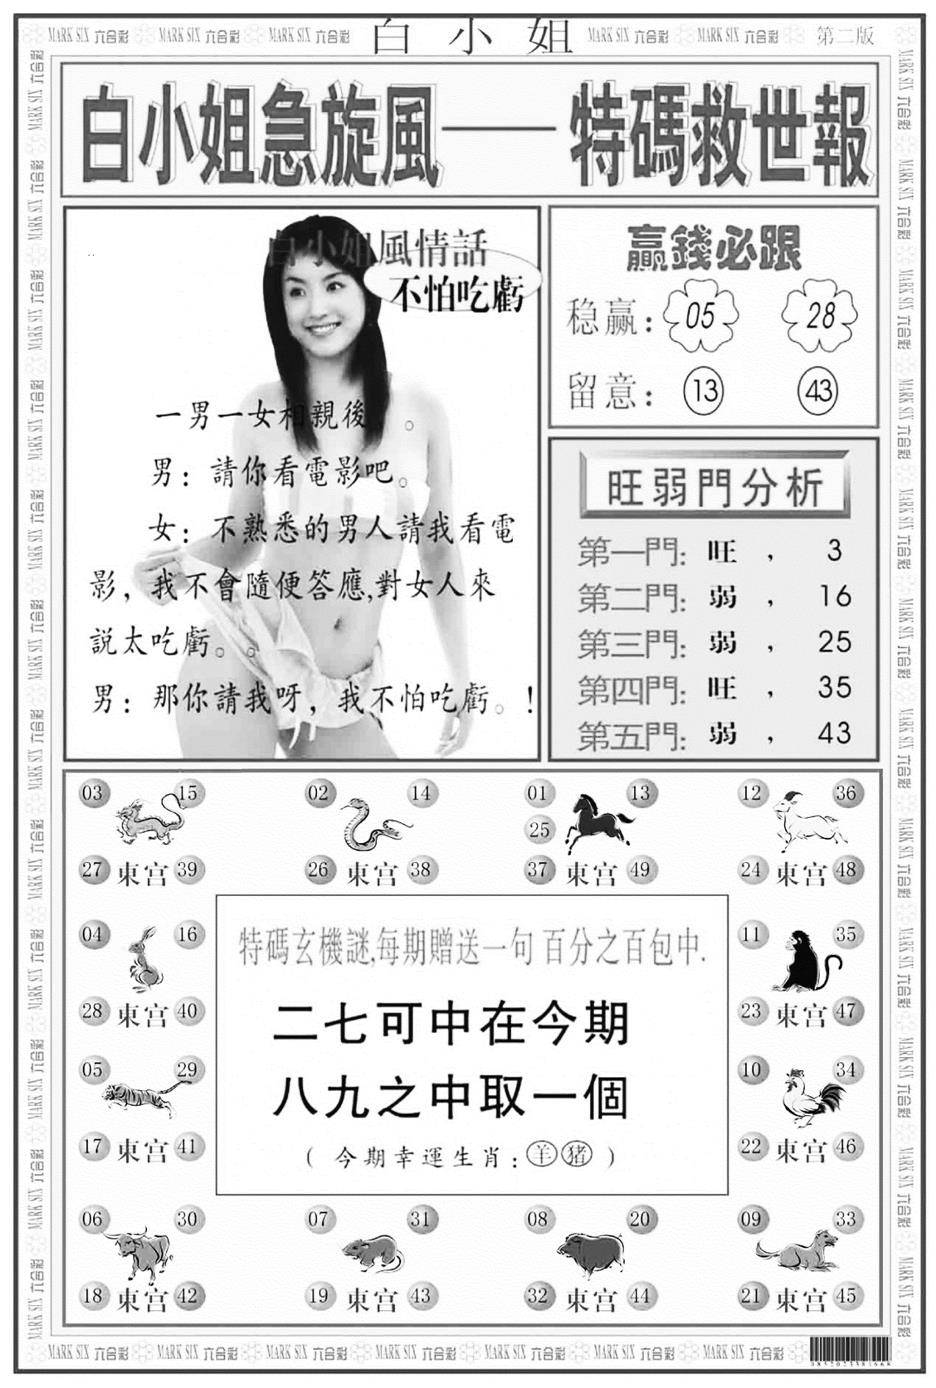 MARK SIX 六合彩 MARK SIX 六合彩 MARK SIX 六合彩 白小姐 MARK SIX 六合彩 MARK SIX 六合彩 第二版
白小姐急旋風——特碼救世報
白小姐風情話
不怕吃虧
一男一女相親後。
男：請你看電影吧。
女：不熟悉的男人請我看電
影，我不會隨便答應,對女人來
說太吃虧。。
男：那你請我呀，我不怕吃虧。！
贏錢必跟
稳赢：05 28
留意：13 43
旺弱門分析
第一門：旺，3
第二門：弱，16
第三門：弱，25
第四門：旺，35
第五門：弱，43
03 15 02 14 01 13 12 36
25
27 東宫 39 26 東宫 38 37 東宫 49 24 東宫 48
04 16 11 35
28 東宫 40 23 東宫 47
05 29 10 34
17 東宫 41 22 東宫 46
特碼玄機謎,每期贈送一句 百分之百包中.
二七可中在今期
八九之中取一個
( 今期幸運生肖：羊 猪 )
06 30 07 31 08 20 09 33
18 東宫 42 19 東宫 43 32 東宫 44 21 東宫 45
MARK SIX 六合彩 MARK SIX 六合彩 MARK SIX 六合彩 MARK SIX 六合彩 MARK SIX 六合彩 MARK SIX 六合彩 MARK SIX 六合彩